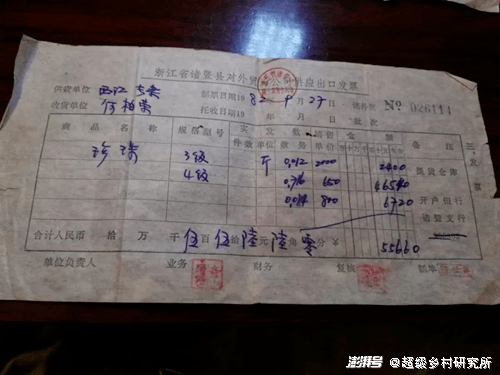 浙江省诸暨县对外贸易公司供应出口发票
供货单位 西江
收货单位 何柏荣
制票日期19 82 年 9 月 27 日
托收日期19 年 月 日 批次
№ 026111
商品名称 规格型号 件数 单位 数量 单价 金额 备注
珍珠 3级 斤 0.012 2000 2400
4级 0.716 650 46540
0.084 800 6720
提货仓库
开户银行
诸暨支行
合计人民币 拾 万 千 伍百 伍拾 陆元 陆角 零分 ¥ 55660
单位负责人 业务 财务 复核 制单
澎湃号 @超级乡村研究所